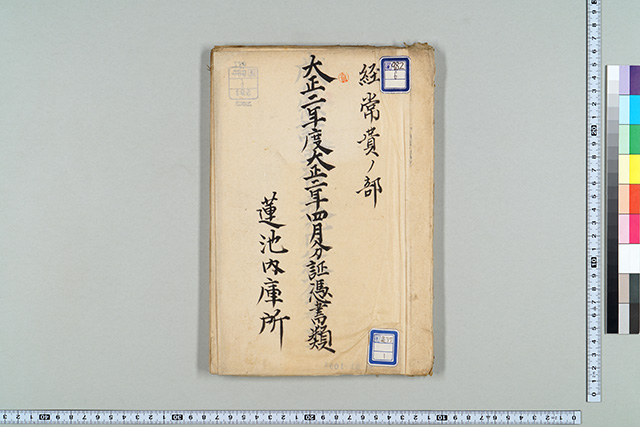 経常費ノ部
大正二年度大正二年四月分証憑書類
蓮池内庫所